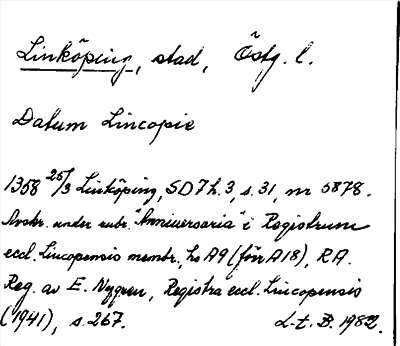 Linköping, stad, Östg. l.
Datum Lincopie
1358 25/3 Linköping, SD 7 h. 3, s. 31, nr 5878.
Avskr. under rubr. "Anniversaria" i Registrum
eccl. Lincopensis membr., hs A9 (förr A18), RA.
Reg. av E. Nygren, Registra eccl. Lincopensis
(1941), s. 267. L-t. B. 1982.